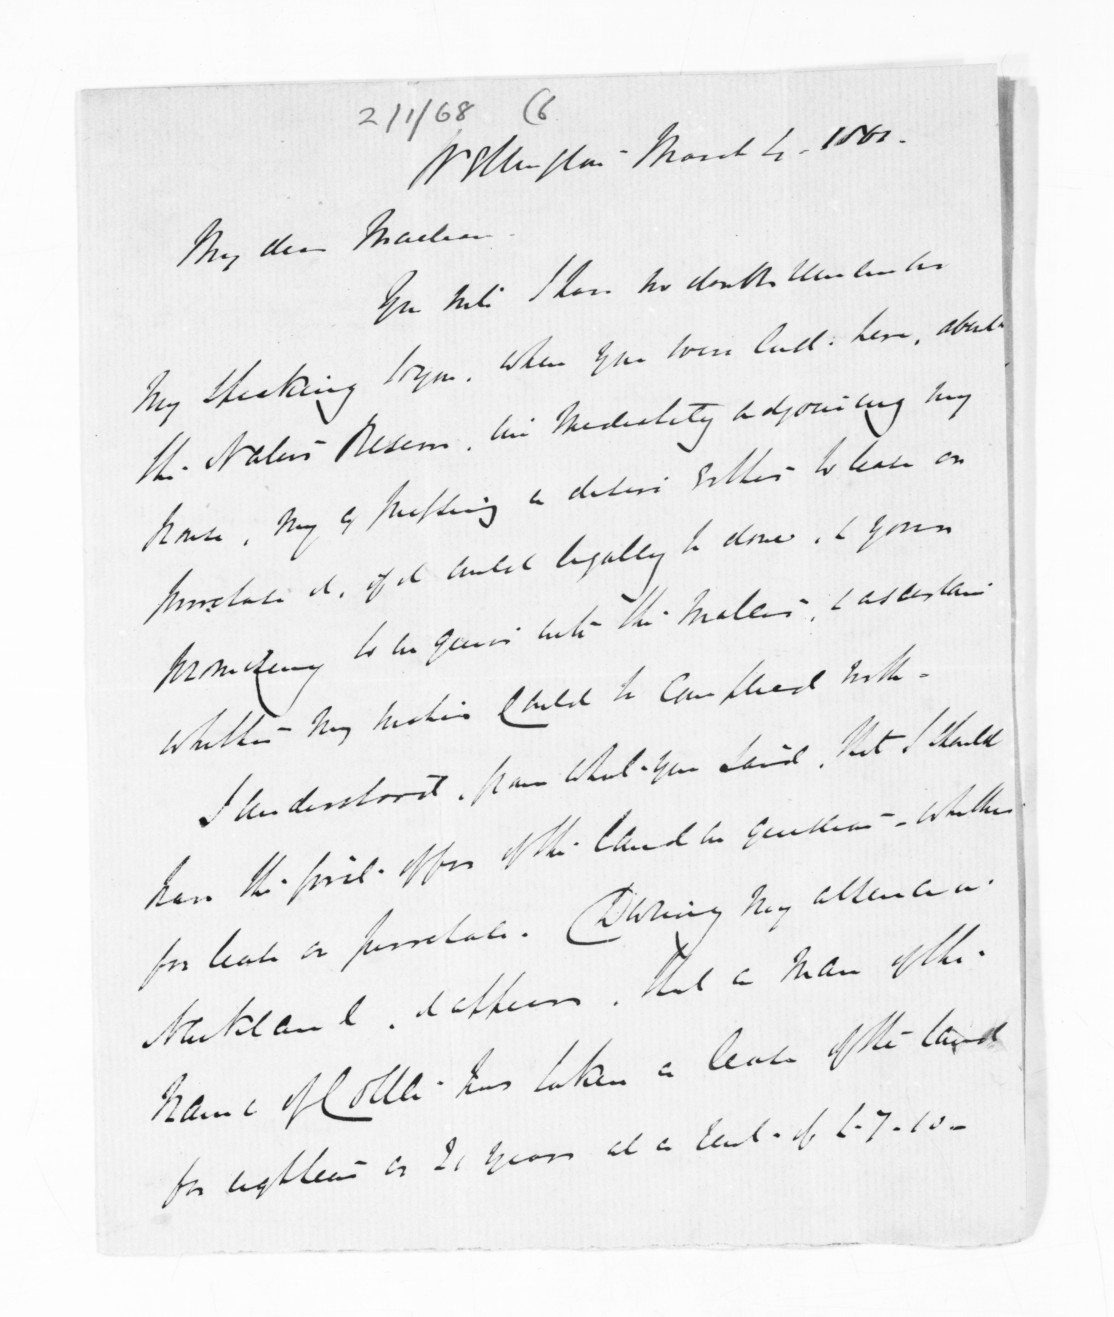 2/1/68 (6
Wellington March 4. 1861.
My dear Maclean.
You will I have no doubt remember
my speaking to you, when you were last here, about
the Native Reserve, immediately adjoining my
house, my expressing a desire either to lease or
purchase it, if it could legally be done, & your
promising to inquire into the matter, & ascertain
whether my wishes could be complied with -
I understood, from what you said, that I should
have the first offer of the land in question - whether
for lease or purchase. During my absence in
Auckland, it appears, that a man of the
name of has taken a lease of the land
for eighteen or 21 years at a rent of £7-10-